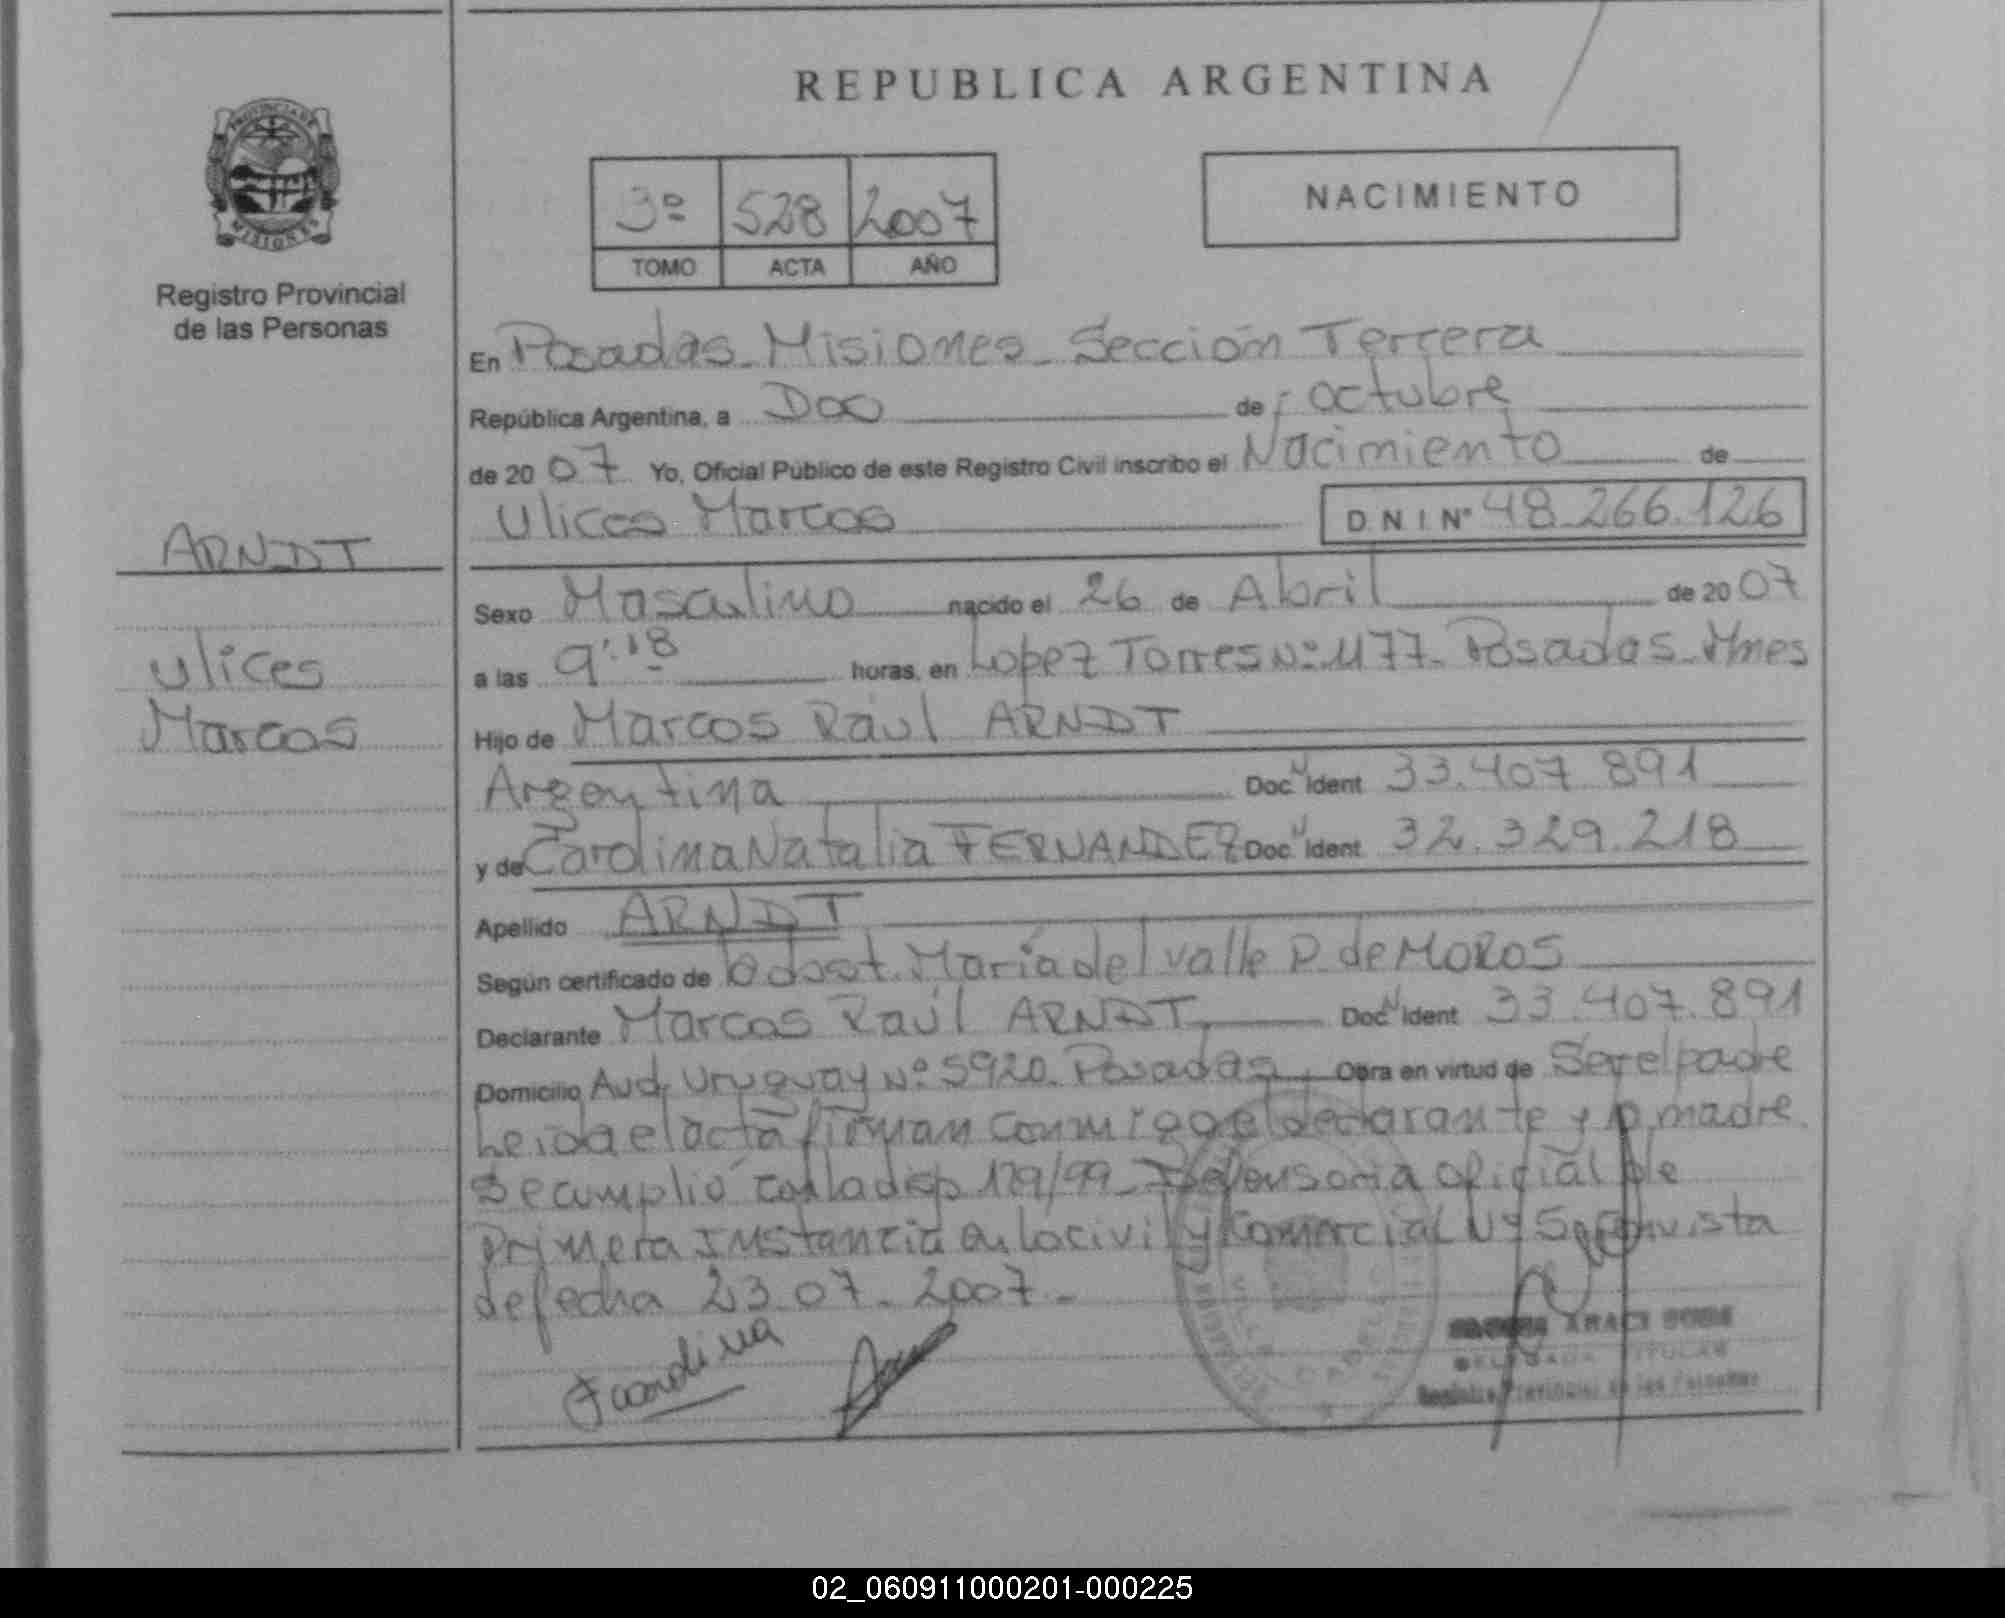 REPUBLICA ARGENTINA
PROVINCIA DE
MISIONES
Registro Provincial
de las Personas
3º 528 2007
TOMO ACTA AÑO
NACIMIENTO
En Posadas - Misiones - Sección Tercera
República Argentina, a Dos de Octubre
de 2007 Yo, Oficial Público de este Registro Civil inscribo el Nacimiento de
Ulices Marcos D N I Nº 48.266.126
ARNDT
Ulices
Marcos
Sexo Masculino nacido el 26 de Abril de 2007
a las 9:18 horas, en Lopez Torres Nº 1177 - Posadas - Mnes
Hijo de Marcos Raúl ARNDT
Argentina Doc N Ident 33.407.891
y de Carolina Natalia FERNANDEZ Doc N Ident 32.329.218
Apellido ARNDT
Según certificado de Obst. María del valle P. de MOROS
Declarante Marcos Raúl ARNDT Doc N Ident 33.407.891
Domicilio Avd. Uruguay Nº 5920. Posadas, Obra en virtud de Ser el padre
Leida el acta firman conmigo el declarante y madre.
Se cumplió con la disp 129/99 - Defensoria oficial de
Primera Instancia en lo civil y Comercial Nº 5 vista
de fecha 23.07.2007.-
DELEGADA TITULAR
Registro Provincial de las Personas
02_060911000201-000225